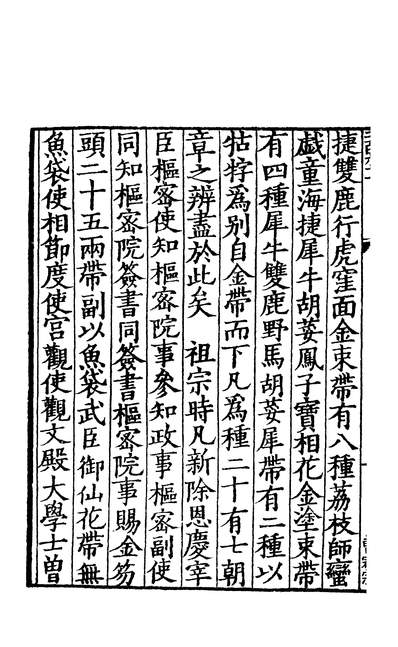 捷雙鹿行虎窪面金束帶有八種荔枝師蠻
戯童海捷犀牛胡荽鳳子寶相花金塗束帶
有四種犀牛雙鹿野馬胡荽犀帶有二種以
牯牸爲别自金帶而下凡爲種二十有七朝
章之辨盡於此矣　祖宗時凡新除恩慶宰
臣樞密使知樞密院事參知政事樞密副使
同知樞密院簽書同簽書樞密院事賜金笏
頭二十五兩帶副以魚袋武臣御仙花帶無
魚袋使相節度使宫觀使觀文殿大學士曽